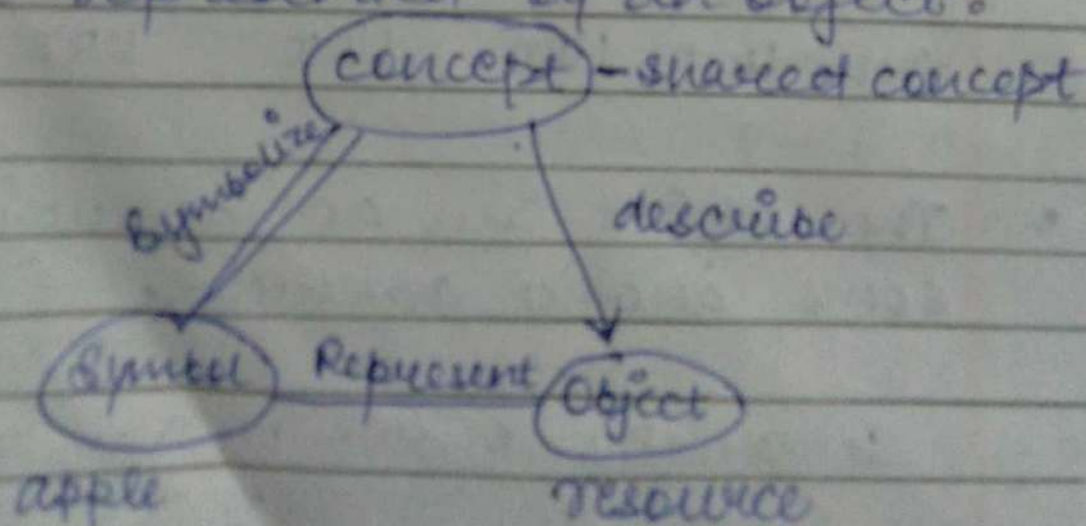 by an object.
concept - shared concept
Symbolize
describe
Symbol Represent Object
apple resource